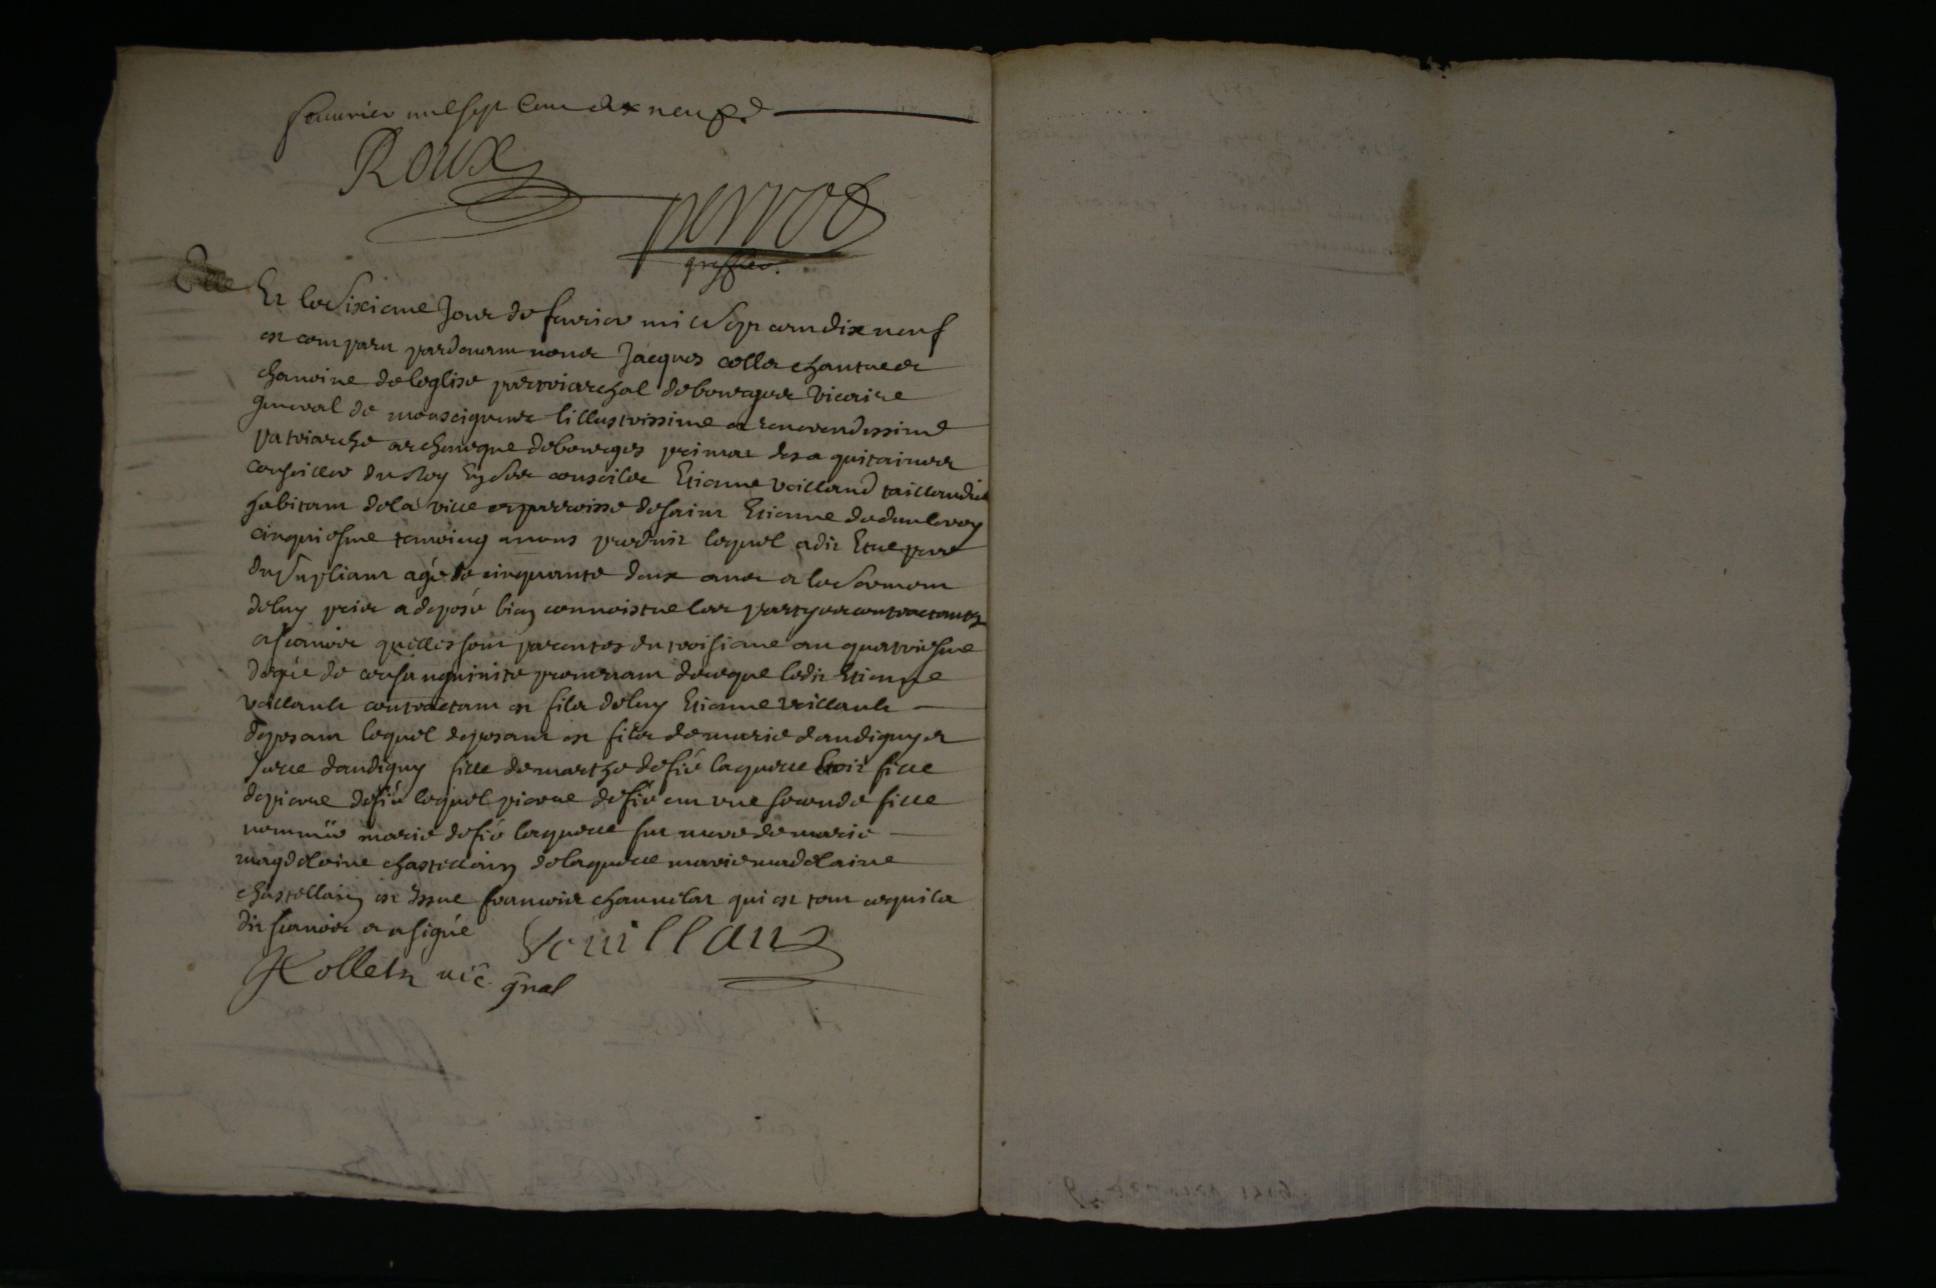 feuvrier mil sept cent dix neuf
Roux
perrot
greffier.
Et le sixieme Jour de fevrier mil sept cent dix neuf
est comparu pardevant nous Jacques collet chantre et
chanoine de leglise patriarchal de bourges vicaire
general de monseigneur lillustrissime et reverendissime
patriarche archeveque de bourges primat des aquitaines
conseiller du Roy En ses conseils Etienne veillaud taillandier
habitant de la ville et parroisse de saint Etienne de dunleroy
cinquiesme temoing a nous produit lequel a dit Etre pere
du supliant agé de cinquante deux ans a le serment
de luy pris a deposé bien connoistre les partyes contractantes
ascavoir quelles sont parentes du troisieme au quatriesme
degré de consanguinite provenant de ce que ledit Etienne
veillault contractant est fils de luy Etienne veillault
deposant lequel deposant est fils de marie dandigny et
dandigny fille de marthe defié laquelle Etoit fille
de pierre defié lequel pierre defié eut une seconde fille
nommée marie defié laquelle fut mere de marie
magdeleine chastellain de laquelle marie madelaine
chastellain est Issue qui est tout ce quil a
dit scavoir et a signé
Veuillaud
Jcollet vic gnal